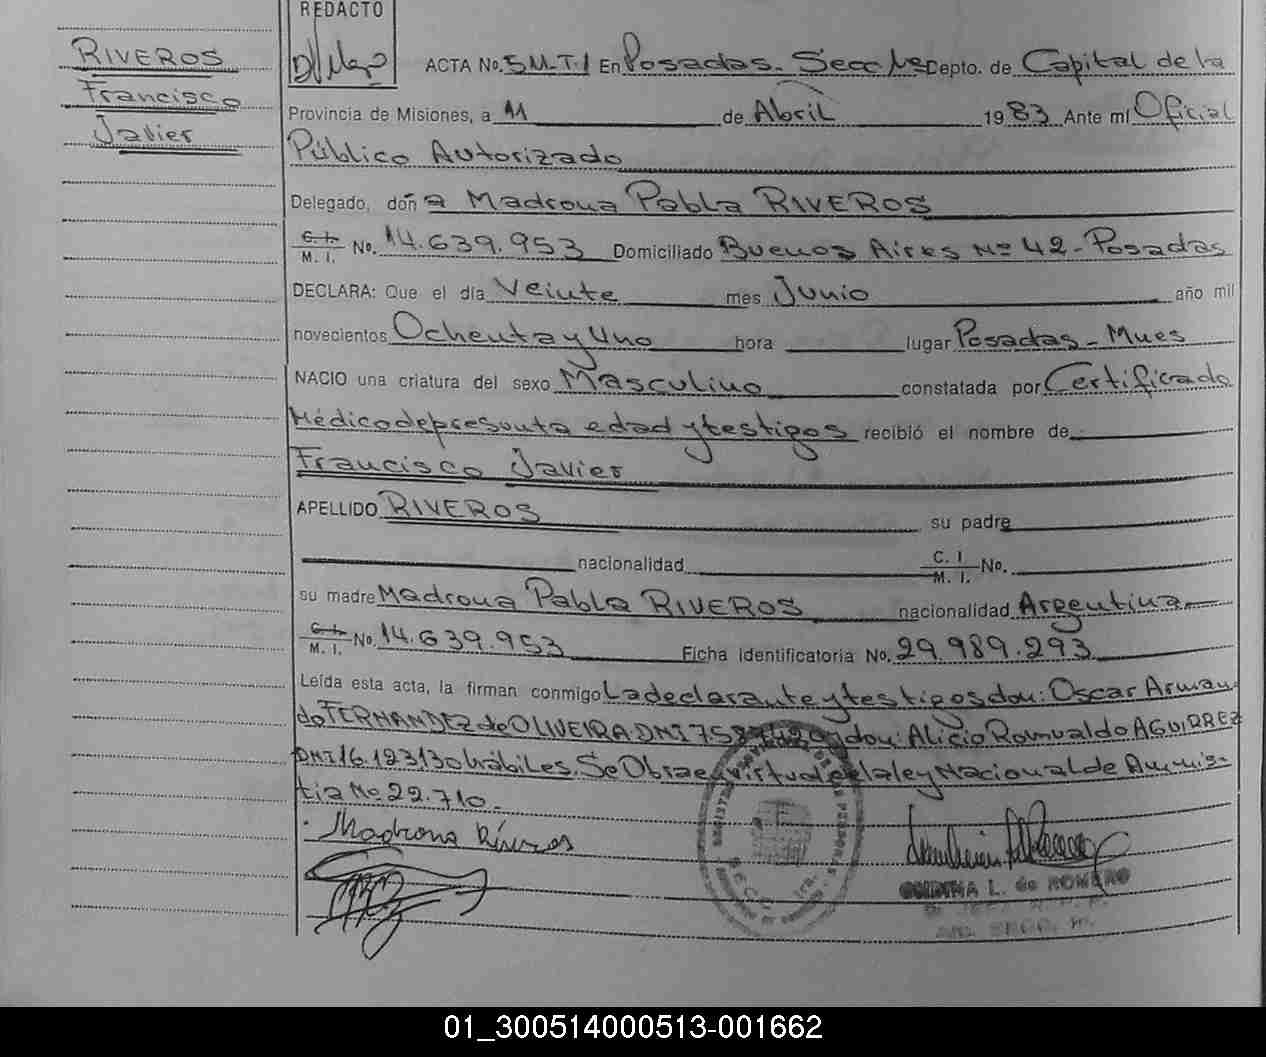 REDACTO
RIVEROS
Francisco
Javier
ACTA No. 5 M-T-1 En Posadas - Secc 1ra Depto. de Capital de la
Provincia de Misiones, a 11 de Abril 1983 Ante mí Oficial
Público Autorizado
Delegado, doña Madrona Pabla RIVEROS
C. I.
M. I. No. 14.639.953 Domiciliado Buenos Aires Nº 42 - Posadas
DECLARA: Que el día Veinte mes Junio año mil
novecientos Ochenta y Uno hora lugar Posadas - Mnes
NACIO una criatura del sexo Masculino constatada por Certificado
Médico de presunta edad y testigos recibió el nombre de
Francisco Javier
APELLIDO RIVEROS su padre
nacionalidad C. I.
M. I. No.
su madre Madrona Pabla RIVEROS nacionalidad Argentina
C. I.
M. I. No. 14.639.953 Ficha Identificatoria No. 29.989.293
Leída esta acta, la firman conmigo La declarante y testigos don: Oscar Arman-
do FERNANDEZ de OLIVEIRA DNI don: Alicio Romualdo AGUIRREZ
DNI 16.123130 hábiles. Se Obra en virtud de la ley Nacional de Amnis-
tia Nº 22.710.-
Madrona Riveros
L. de ROMERO
01_300514000513-001662